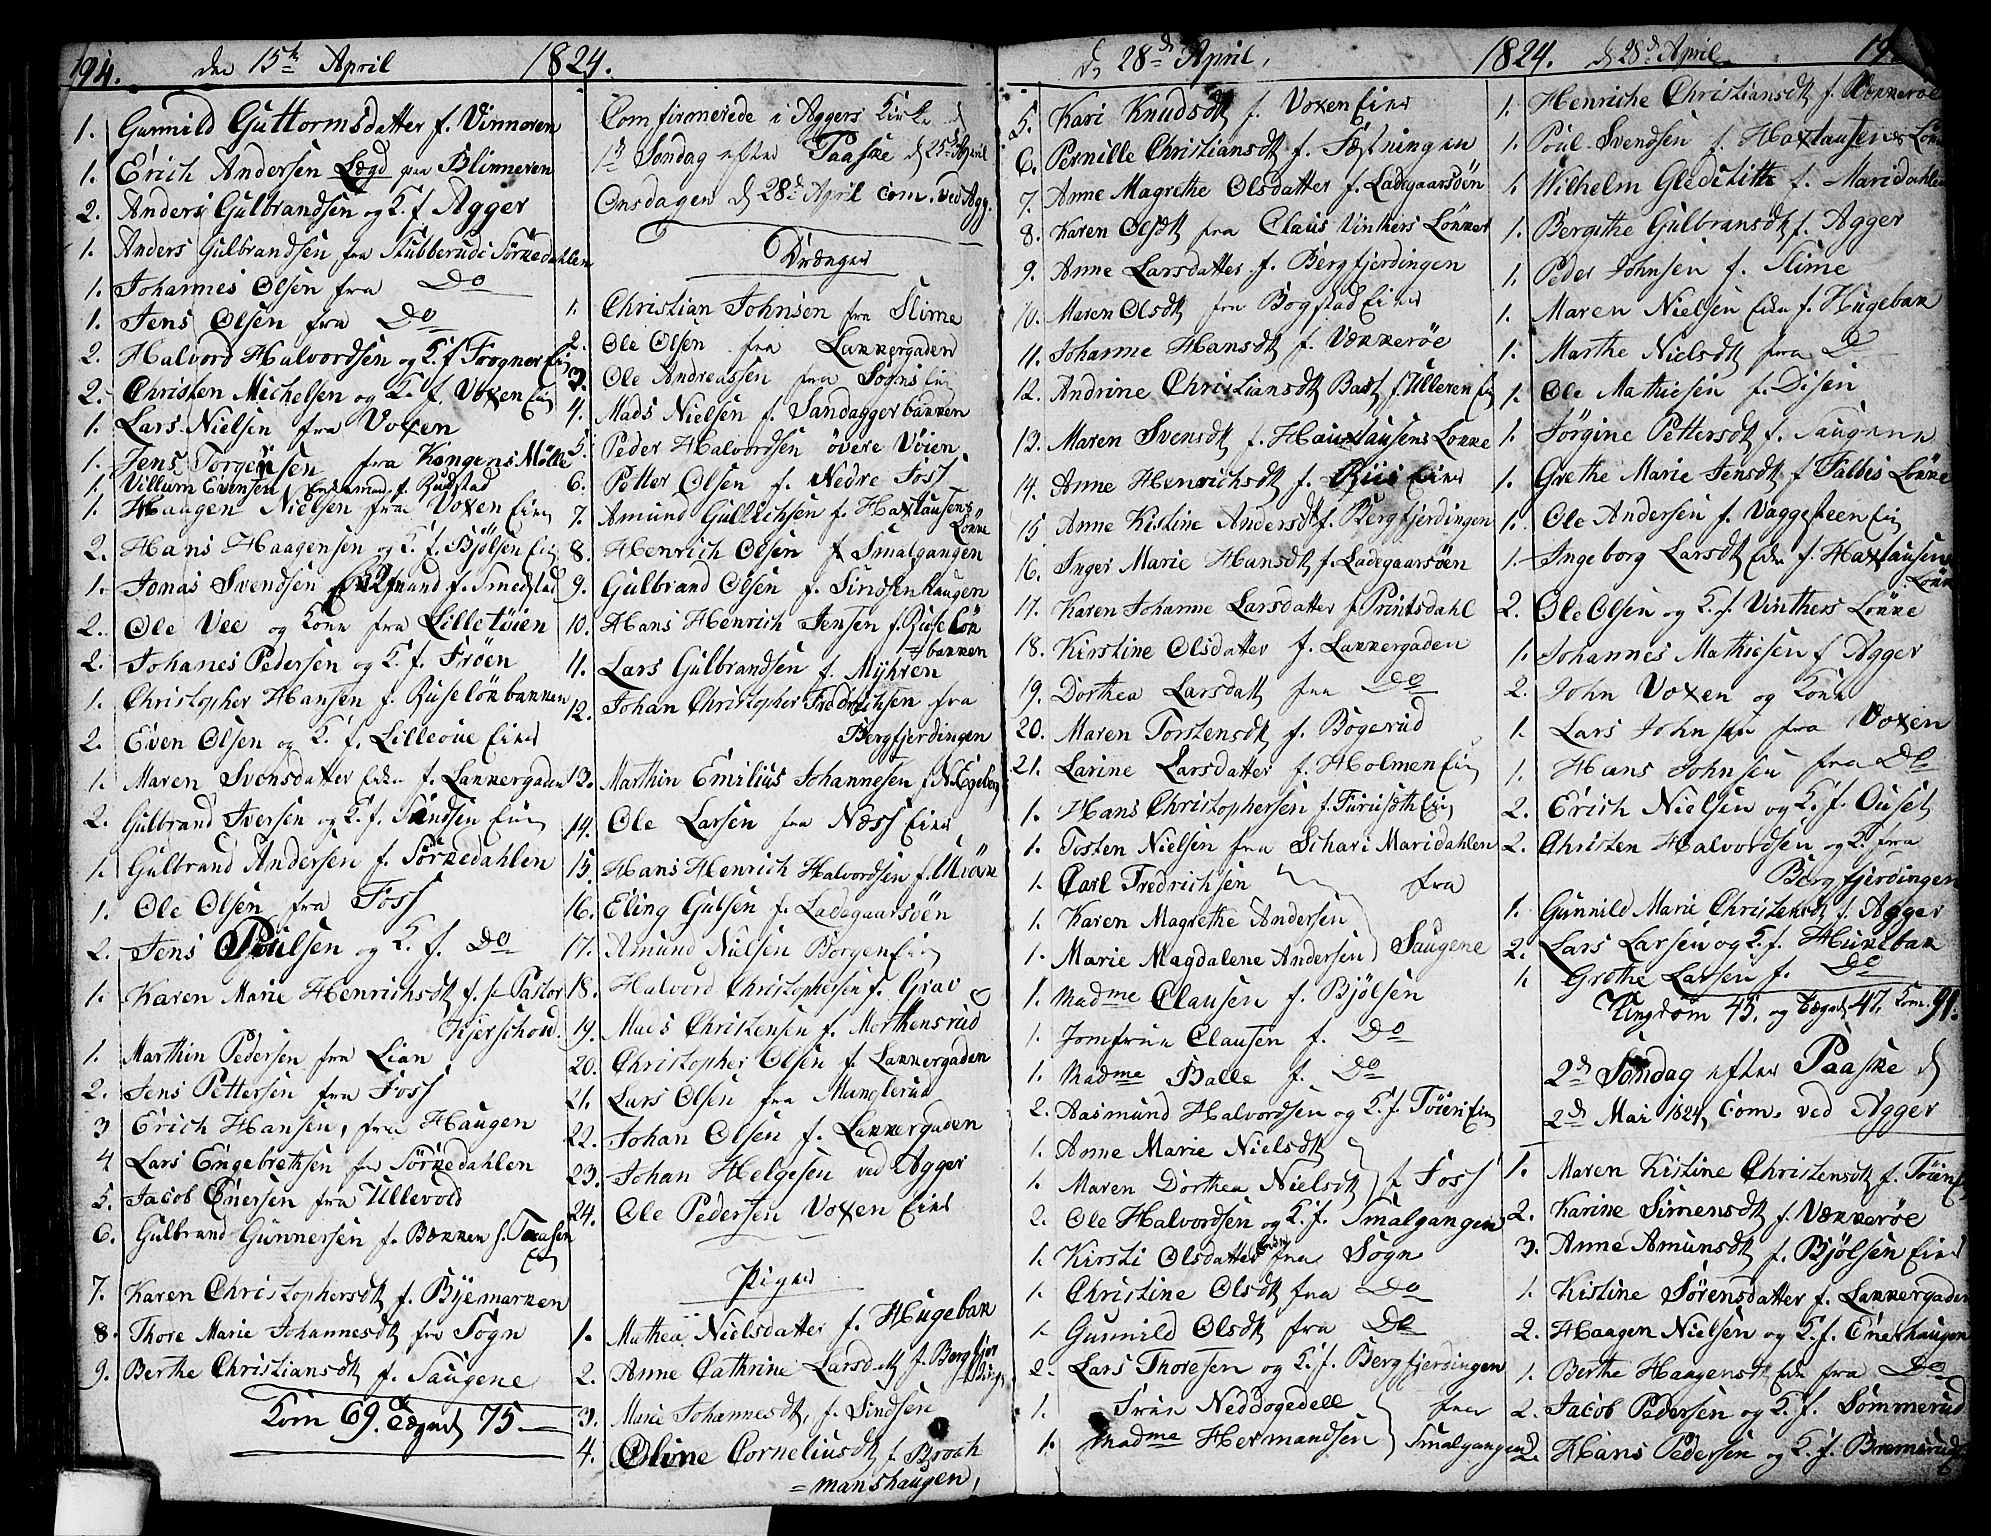 194. den 15de April 1824.
1. Gunnild Guttormsdatter f. Vinnoren
1. Erich Andersen Lægd paa Blinneren
2. Anders Gulbrandsen og K. f. Agger
1. Anders Gulbrandsen fra Stubberud i Sörkedahlen
1. Johannes Olsen fra Do
1. Jens Olsen fra Do
2. Halvord Halvordsen og K. f. Frogner Eie
2. Christen Michelsen og K. f. Voxen Eie
1. Lars Nielsen fra Voxen
1. Jens Torgersen fra Kongens Mölle
1. Villum Evensen Enkemand f. Rudstad
1. Haagen Nielsen fra Voxen Eie
2. Hans Haagensen og K. f. Bjölsen Eie
1. Jonas Svendsen f. Smedstad
2. Ole Vee og Kone fra Lilletöien
2. Johanes Pedersen og K. f. Fröen
1. Christopher Hansen f. Ruselökbakken
2. Even Olsen og K. f. Eier
1. Maren Svensdatter Enke f. Lakkergaden
2. Gulbrand Iversen og K. f. Sindsen Eie
1. Gulbrand Andersen f. Sörkedahlen
1. Ole Olsen fra Foss
2. Jens Poulsen og K. f. Do
1. Karen Marie Henrichsdt f. Pastor
Kjerschou
1. Marthin Pedersen fra Lian
2. Jens Pettersen fra Foss
3 Erich Hansen, fra Haugen
4 Lars Engebrethsen fra Sörkedahlen
5. Jacob Enersen fra Ullevold
6. Gulbrand Gunnersen f. Bakken
7. Karen Christophersdt f. Byemarken
8. Thore Marie Johannesdt fra Sogn
9. Berthe Christiansdt f. Saugene
Kom 69. 75
Comfirmerede i Aggers Kirke d
1ste Söndag efter Paaske d 25de April
Onsdagen d 28de April com. ved Agg.
Drænger
1. Christian Johnsen fra Slime
2. Ole Olsen fra Lakkergaden
3. Ole Andreassen fra Sogns Eie
4. Mads Nielsen f. Sandaggerbakken
5. Peder Halvordsen övere Vöien
6. Petter Olsen f. Nedre Foss
7. Amund Gullichsen f. Haxtausens
Lökke
8. Henrich Olsen f. Smalgangen
9. Gulbrand Olsen f. Sindsen Haugen
10. Hans Henrich Jensen f. Ruselök
bakken
11. Lars Gulbrandsen f. Myhren
12. Johan Christopher Fredrichsen fra
Bergfjerdingen
13. Marthin Emilius Johannesen f. N. Egeberg
14. Ole Larsen fra Næss Eier
15. Hans Henrich Halvordsen f.
16. Eling Gulsen f. Ladegaarsöen
17. Amund Nielsen Borgen Eie
18. Halvord Christophersen f. Grav
19. Mads Christensen f. Morthensrud
20. Christopher Olsen f. Lakkergaden
21. Lars Olsen fra Manglerud
22. Johan Olsen f. Lakkergaden
23. Johan Helgesen ved Agger
24. Ole Pedersen Voxen Eier
Piger
1. Mathea Nielsdatter f. Hugebak
2. Anne Cathrine Larsdt f. Bergfjer
ding
3. Marie Johannesdt, f. Sindsen
4. Oline Corneliusdt f. Broch
=manshaugen,
d 28de April, 1824. d 28de April
5. Kari Knudsdt f. Voxen Eier
6. Pernille Christiansdt f. Fæstningen
7. Anne Magrethe Olsdatter f. Ladegaarsöen
8. Karen Olsdt fra Claus Vinthers Lökker
9. Anne Larsdatter f. Bergfjerdingen
10. Maren Olsdt fra Bogstad Eier
11. Johanne Hansdt f. Vækkeröe
12. Andrine Christiansdt Bast f. Ulleren Eie
13. Maren Svensdt f. Hauxtausens Lökke
14. Anne Henrichsdt f. Riis Eier
15 Anne Kistine Andersdt f. Bergfjerdingen
16. Inger Marie Hansdt f. Ladegaarsöen
17. Karen Johanne Larsdatter f. Printsdahl
18. Kirstine Olsdatter f. Lakkergaden
19. Dorthea Larsdatt fra Do
20. Maren Torstensdt f. Bogerud
21. Larine Larsdatter f. Holmen Eie
1. Hans Christophersen f. Furusæth Eie
1. Tosten Nielsen fra Schari Maridahlen
1. Carl Fredrichsen fra
1. Karen Magrethe Andersen
1. Marie Magdalene Andersen Saugene
1. Madme Clausen f. Bjölsen
1. Jomfrue Clausen f. Do
1. Madme Balle f. Do
2. Aasmund Halvordsen og K. f. Töien Eie
1. Anne Marie Nielsdt
1. Maren Dorthea Nielsdt f Foss
2. Ole Halvordsen og K. f. Smalgangen
1. Kirsti Olsdatter Enke fra Sogn
1. Christine Olsdt fra Do
1. Gunnild Olsdt fra Do
2. Lars Thoresen og K. f. Bergfjerdingen
1. Frue Neddogedell fra
1. Madme Hermandsen Smalgangen
1. Henriche Christiansdt f. Vækkeröe
1. Poul Svendsen f. Haxtausens Lökke
1. Wilhelm Gleditith f. Maridahlen
1. Bergithe Gulbransdt f. Agger
1. Peder Johnsen f. Slime
1. Maren Nielsen Enke f. Hugebak
1. Marthe Nielsdt fra D
1. Ole Mathiesen f. Disen
1. Jörgine Pettersdt f. Saugene
1. Grethe Marie Jensdt f. Falbis Lökke
1. Ole Andersen f. Vaggesteen Eie
1. Ingeborg Larsdt Enke f. Haxtausens
Lökke
2. Ole Olsen og K. f. Vinthers Lökke
1. Johannes Mathiesen f Agger
2. John Voxen og Kone
1. Lars Johnsen fra Voxen
1. Hans Johnsen fra Do
2. Erich Nielsen og K. f. Ouset
2. Christen Halvordsen og K. fra
Bergfjerdingen
1. Gunnild Marie Christensdt f. Agger
2. Lars Larsen og K. f. Hukebak
1. Grethe Larsen f. Do
Ungdom 45, og 47, Kom. 91.
2den Söndag efter Paaske d
2den Mai 1824, Com. ved Agger
1. Maren Kistine Christensdt f. Töien E
2. Karine Simensdt f. Vækkeröe
3. Anne Amunsdt f. Bjölsen Eier
1. Kistine Sörensdatter f. Lakkergaden
2. Haagen Nielsen og K. f. Enerhaugen
1. Berthe Haagensdt Enke fra Do
2. Jacob Pedersen og K. f. Sommerud
2. Hans Pedersen og K. f. Bremsrud